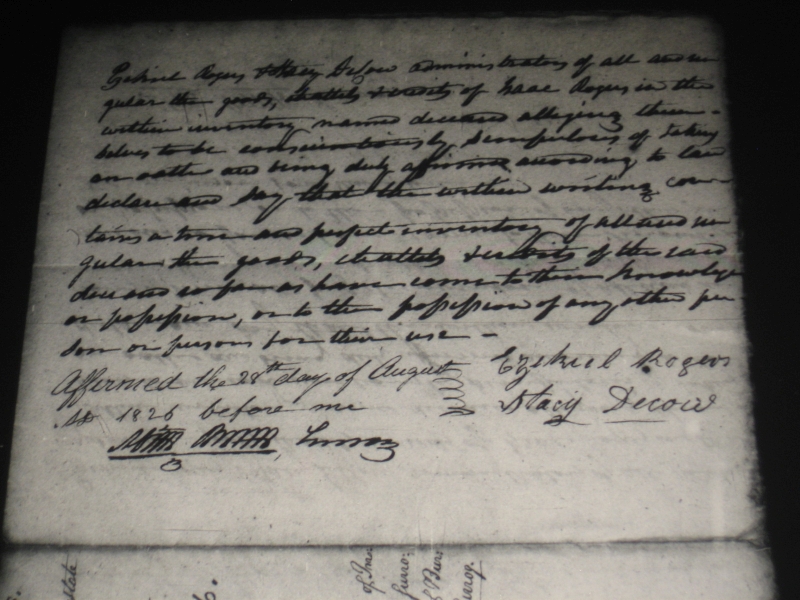 Ezekiel Rogers & Stacy Decow administrators of all and sin
gular the goods, chattels & credits of Isaac Rogers in the
within inventory named deceased alledging them-
selves to be conscientiously scrupulous of taking
an oath and being duly affirmed according to law
declare and say that the within writing con-
tains a true and perfect inventory of all and sin
gular the goods, chattels & credits of the said
deceased so far as have come to their knowledge
or possession, or to the possession of any other per-
son or persons for their use -
Affirmed the 28th day of August Ezekiel Rogers
AD 1826 before me Stacy Decow
Surrog
state
6.
of Inv
Surro:
of Bur
Surrog.